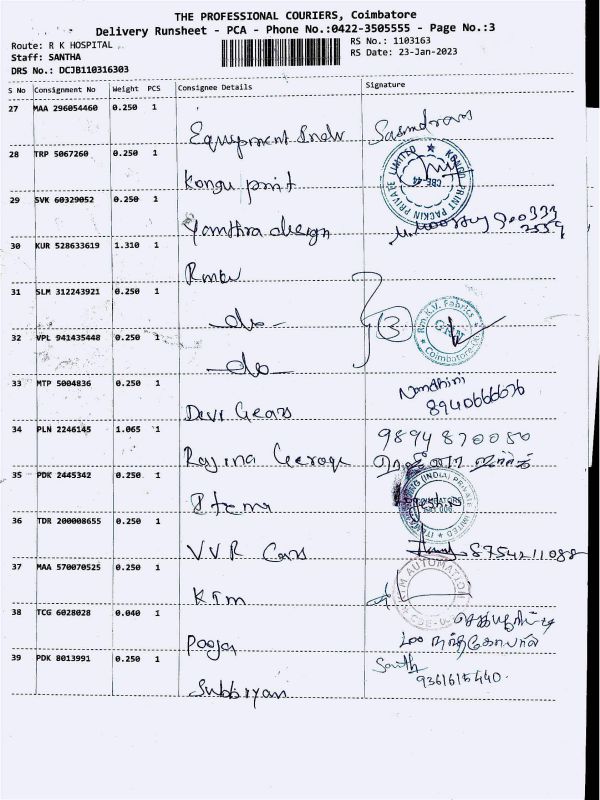 THE PROFESSIONAL COURIERS, Coimbatore
Delivery Runsheet - PCA - Phone No.:0422-3505555 - Page No.:3
Route: R K HOSPITAL
RS No.: 1103163
Staff: SANTHA
RS Date: 23-Jan-2023
DRS No.: DCJB110316303
S No Consignment No Weight PCS Consignee Details Signature
27 MAA 296054460 0.250 1
28 TRP 5067260 0.250 1
Kongu print
KONGU PRINT PACKIN PRIVATE LIMITED
29 SVK 60329052 0.250 1
design
30 KUR 528633619 1.310 1
31 SLM 312243921 0.250 1
-do-
3
Rm K.V. Fabrics
Coimbatore
32 VPL 941435448 0.250 1
-do-
33 MTP 5004836 0.250 1
Devi Gears
Nandhini
8940666676
34 PLN 2246145 1.065 1
9894870080
35 PDK 2445342 0.250 1
(INDIA) PRIVATE LIMITED
COIMBATORE
36 TDR 200008655 0.250 1
VVR Cars
8754211088
37 MAA 570070525 0.250 1
KTM
AUTOMATION
38 TCG 6028028 0.040 1
Pooja
39 PDK 8013991 0.250 1
Subbiyan
9361615440